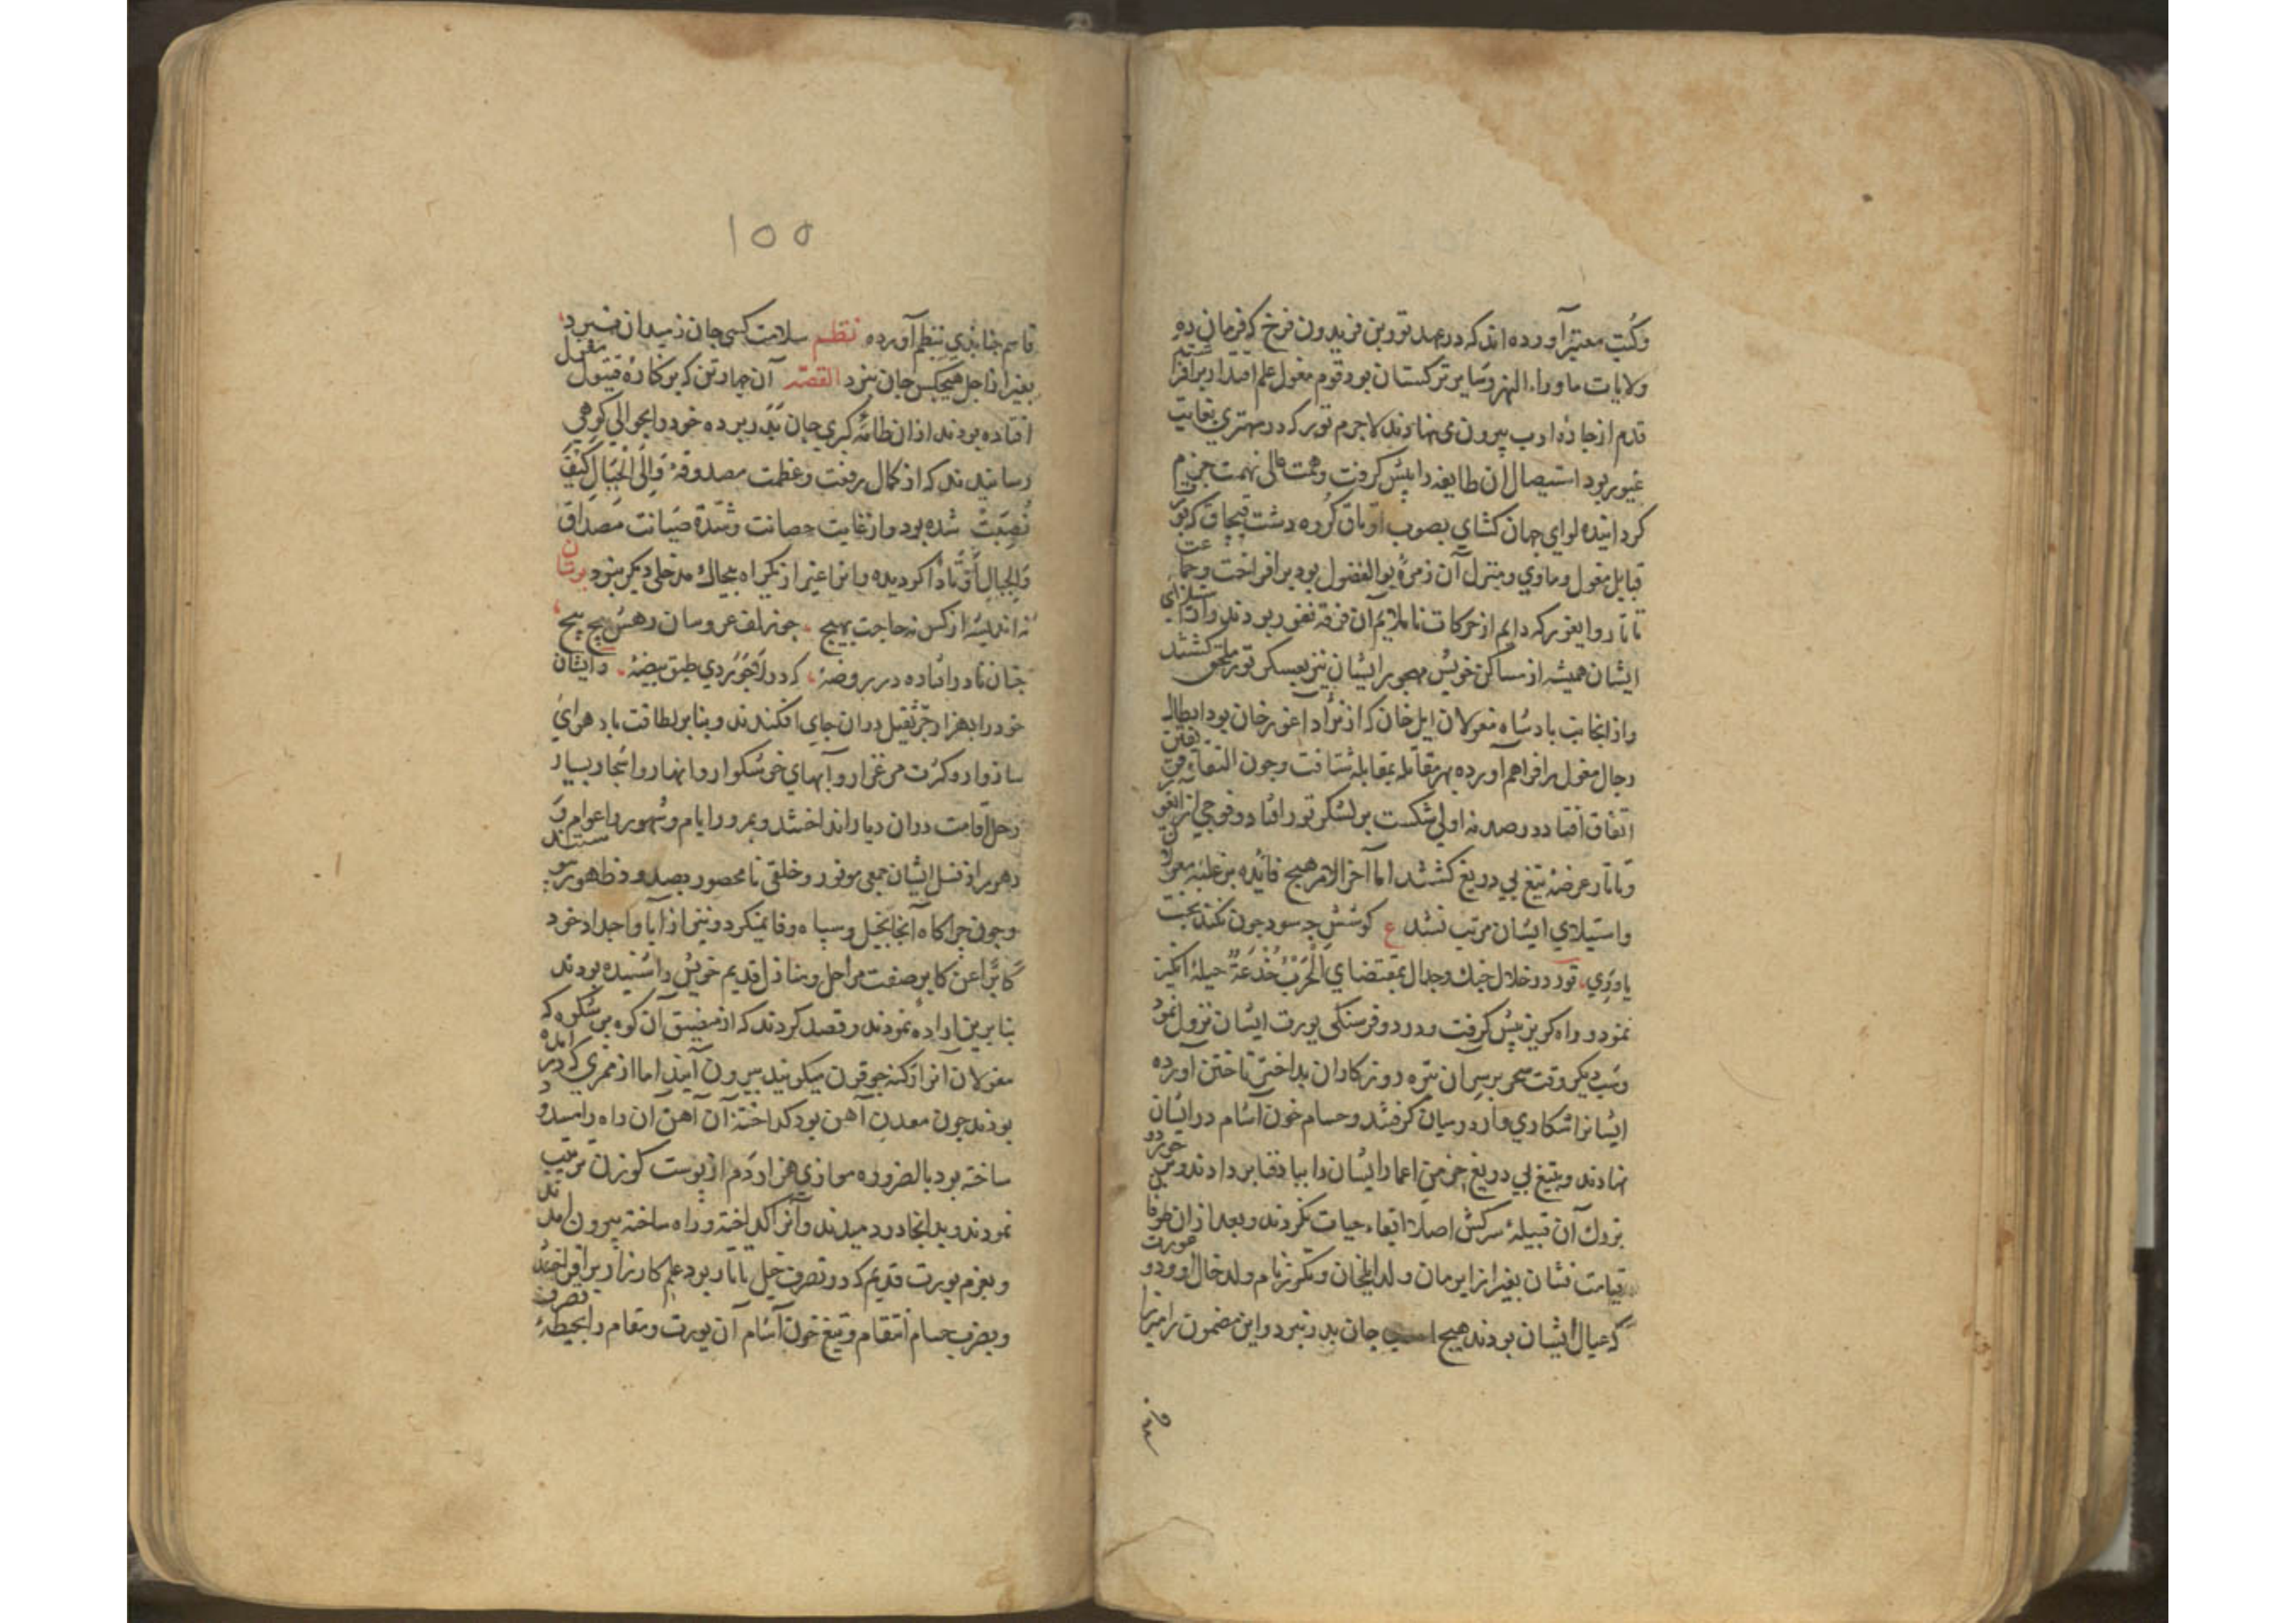 وکُتب معتبر آورده اند که در عهد تور بن فریدون فرخ که فرمان ده
ولایات ماوراء النهر و سایر ترکستان بود قوم مغول علم اقتدار برافراشته
قدم از جادهٔ ادب بیرون می نهادند لاجرم تور که در مهتری بغایت
غیور بود استیصال ان طایفه را پیش کرفت و همت عالی نهمت جزم
کردانیده لوای جهان کشای بصوب اوتاق کروه دشت قبچاق که مقر
قبایل مغول و ماوی و منزل آن زمرهٔ بوالفضول بود برافراخت و جماعت
تاتار و ایغور که دایم از حرکات ناملایم آن فرقه نفور بودند و از ایذای
ایشان همیشه از مساکن خویش مهجور ایشان نیز بعسکر تور ملحق کشتند
و از انجانب بادشاه مغولان ایل خان که از نژاد اغور خان بود ابطال
رجال مغول را فراهم آورده بهر مقاتله بمقابله شتافت و چون التقاء فریقین
اتفاق افتاد در صدمهٔ اولی شکست بر لشکر تور افتاد و فوجی از ایغور
و تاتار عرضهٔ تیغ بی دریغ کشتند اما آخر الامر هیچ فائده بر غلبهٔ مغول
و استیلای ایشان مرتب نشد ع کوشش چه سود چون نکند بخت
یاوری تور در خلال جنك و جدال بمقتضای اَلْحَرْبُ خُدْعَةٌ حیله انکیز
نمود و راه کریز پیش کرفت و در دو فرسنکی یورت ایشان نزول نمود
و شب دیکر وقت سحر بر سر آن تیره روزکاران بداختر تاختن آورده
ایشانرا شکاری وار در میان کرفتند و حسام خون آشام در ایشان
نهادند و بتیغ بی دریغ خرمن اعمار ایشان را بباد فنا بر دادند و بر خورد و
بزرك آن قبیلهٔ سرکش اصلا ابقاء حیات نکردند و بعد از ان طرفا
قیامت نشان بغیر از ایرمان ولد ایلخان و تکوز نام ولد خال او و دو عورت
که عیال ایشان بودند هیچ جان بدر نبرد و این مضمون را میرزا
۱۵۵
قاسم جنابذی بنظم آورده نظم سلامت کسی جان ز میدان نبرد
بغیر از اجل هیچکس جان نبرد القصه آن چهار تن که بر کنارهٔ مقتل
افتاده بودند از ان طامهٔ کبری جان بدر برده خود را بحوالی کوهی
رسانیدند که از کمال رفعت و عظمت مصدوقهٔ وَاِلَی الْجِبَالِ كَیْفَ
نُصِبَتْ شده بود و از غایت حصانت و شدّة صیانت مصداق
وَالجِبالِ اَوْتَاداً کردیده و انرا غیر از یکراه بیجاك مدخلی دیکر نبود
نه اندیشه از کس نه حاجت بهیچ چو زلف عروسان رهش پیچ پیچ
خود را بهزار جرّ ثقیل در ان جای افکندند و بنابر لطافت باد هوای
سازوار و کثرت مرغزار و آبهای خوشکوار و انهار و اشجار بسیار
رحل اقامت در ان دیار انداختند و بمرور ایام و شهور و اعوام و سنین
دهور از نسل ایشان جمعی موفور و خلقی نامحصور بصدور و ظهور
و چون چراکاه آنجا بخیل و سپاه وفا نمیکرد و نیز از آبا و اجداد خود
کابراً عن کابر صفت مراحل و منازل قدیم خویش را شنیده بودند
بنابرین اراده نمودند و قصد کردند که از مضیق آن کوه پر شکوه که
مغولان آنرا ارکنه چو قون میکویند بیرون آیند اما از ممری که در امده
بودند چون معدن آهن بود کداختهٔ آن آهن آن راه را مسدود
ساخته بود بالضروره موازی هزار دَم از پوست کوزن ترتیب
نمودند و بدانجا در دمیدند و آنرا کداخته و راه ساخته بیرون امدند
و بعزم یورت قدیم که در تصرف خیل تاتار بود علم کارزار برافراختند
و بضرب حسام انتقام و تیغ خون آشام آن یورت و مقام را بحیطهٔ تصرف